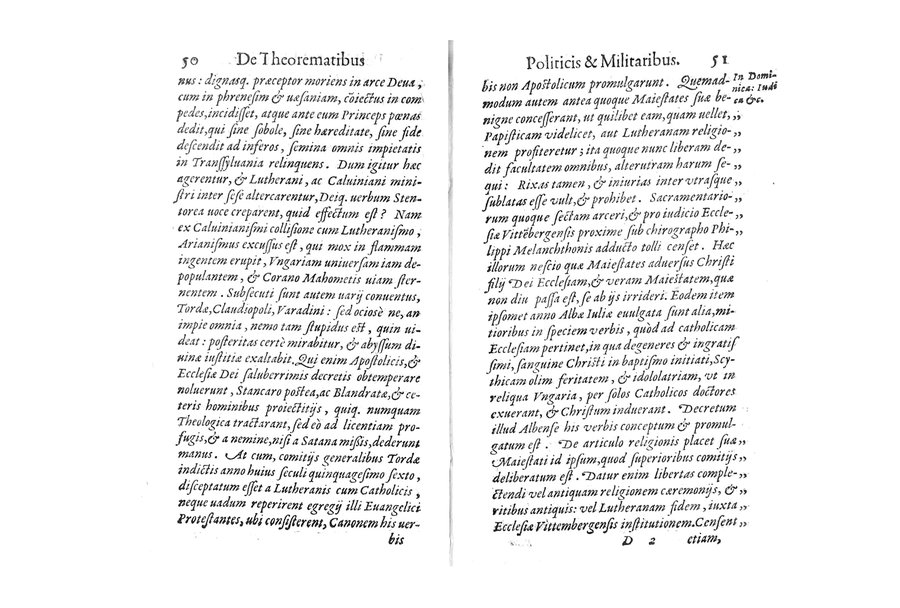 50 De Theorematibus
nus : dignasq. præceptor moriens in arce Deua,
cum in phrenesim & uæsaniam, cōiectus in com
pedes, incidisset, atque ante eum Princeps pœnas
dedit, qui sine sobole, sine hæreditate, sine fide
descendit ad inferos, semina omnis impietatis
in Transsyluania relinquens. Dum igitur hæc
agerentur, & Lutherani, ac Caluiniani mini-
stri inter sese altercarentur, Deiq. uerbum Sten-
torea uoce creparent, quid effectum est? Nam
ex Caluinianismi collisione cum Lutheranismo,
Arianismus excussus est, qui mox in flammam
ingentem erupit, Vngariam uniuersam iam de-
populantem, & Corano Mahometis uiam ster-
nentem. Subsecuti sunt autem uarij conuentus,
Tordæ, Claudiopoli, Varadini : sed ociosè ne, an
impie omnia, nemo tam stupidus est, quin ui-
deat : posteritas certè mirabitur, & abyssum di-
uinæ iustitiæ exaltabit. Qui enim Apostolicis, &
Ecclesiæ Dei saluberrimis decretis obtemperare
noluerunt, Stancaro postea, ac Blandratæ, & ce-
teris hominibus proiectitijs, quiq. numquam
Theologica tractarant, sed eò ad licentiam pro-
fugis, & a nemine, nisi a Satana missis, dederunt
manus. At cum, comitijs generalibus Tordæ
indictis anno huius seculi quinquagesimo sexto,
disceptatum esset a Lutheranis cum Catholicis,
neque uadum reperirent egregij illi Euangelici
Protestantes, ubi consisterent, Canonem his uer-
bis
Politicis & Militaribus. 51
bis non Apostolicum promulgarunt. Quemad-
In Domi-
nica: Iudi
ca &c.
modum autem antea quoque Maiestates suæ be-
nigne concesserant, ut quilibet eam, quam uellet, „
Papisticam videlicet, aut Lutheranam religio- „
nem profiteretur ; ita quoque nunc liberam de- „
dit facultatem omnibus, alterutram harum se- „
qui : Rixas tamen, & iniurias inter vtrasque „
sublatas esse vult, & prohibet. Sacramentario- „
rum quoque sectam arceri, & pro iudicio Eccle- „
siæ Vittēbergensis proxime sub chirographo Phi- „
lippi Melanchthonis adducto tolli censet. Hæc
illorum nescio quæ Maiestates aduersus Christi
filij Dei Ecclesiam, & veram Maiestatem, quæ
non diu passa est, se ab ijs irrideri. Eodem item
ipsomet anno Albæ Iuliæ euulgata sunt alia, mi-
tioribus in speciem verbis, quòd ad catholicam
Ecclesiam pertinet, in qua degeneres & ingratis
simi, sanguine Christi in baptismo initiati, Scy-
thicam olim feritatem, & idololatriam, vt in
reliqua Vngaria, per solos Catholicos doctores
exuerant, & Christum induerant. Decretum
illud Albense his verbis conceptum & promul-
gatum est. De articulo religionis placet suæ „
Maiestati id ipsum, quod superioribus comitijs „
deliberatum est. Datur enim libertas comple- „
ctendi vel antiquam religionem cæremonijs, & „
ritibus antiquis : vel Lutheranam fidem, iuxta „
Ecclesiæ Vittembergensis institutionem. Censent „
D 2 etiam,